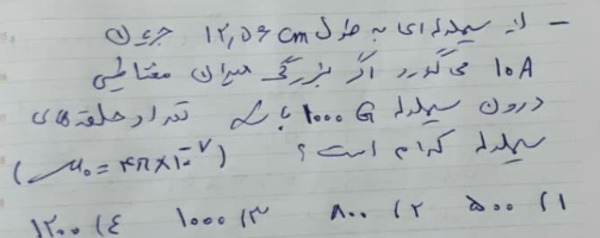 - از سیملوله ای به طول ۱۲٫۵۶ cm جریان
۱۰A می گذرد اگر بزرگی میدان مغناطیسی
درون سیملوله ۱۰۰۰ G باشد تعداد حلقه های
سیملوله کدام است ؟ (μ₀ = ۴π×۱۰⁻⁷)
۱) ۵۰۰ ۲) ۸۰۰ ۳) ۱۰۰۰ ۴) ۱۲۰۰